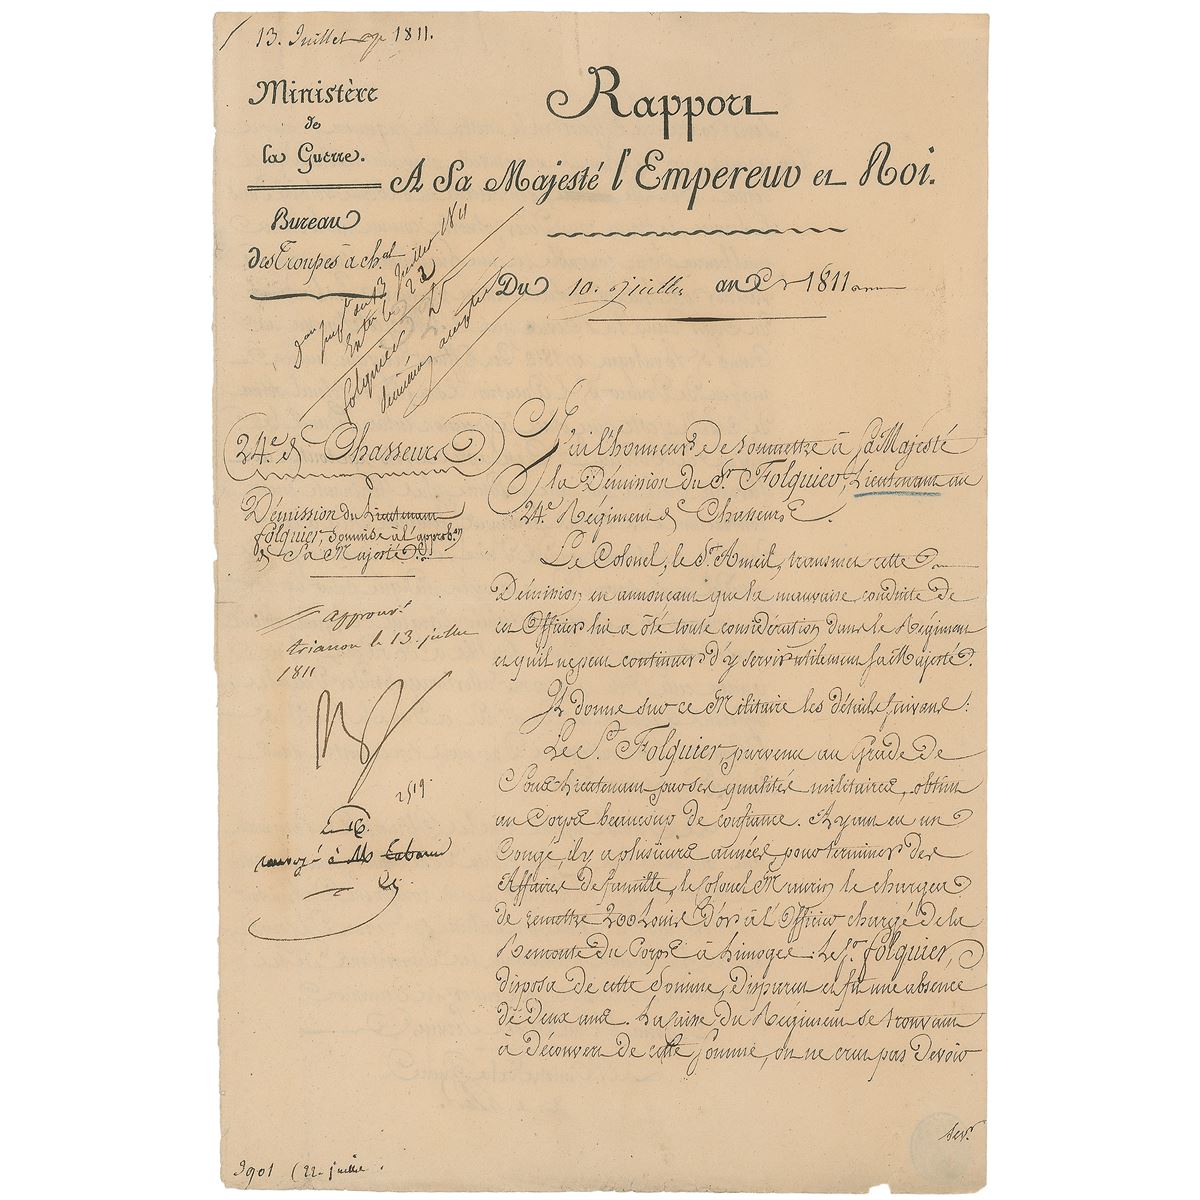 13. Juillet 1811.
Ministère
de
la Guerre.
Bureau
des Troupes à ch.al
Rapport
A Sa Majesté l'Empereur et Roi.
Du 10. juillet an 1811
13 Juillet 1811
folquier
démission acceptée
24.e de Chasseurs.
Démission du Lieutenant
folquier, soumise à l'approb.on
de Sa Majesté.
approuvé
trianon le 13. juillet
1811
2519.
renvoyé à
J'ai l'honneur de soumettre à Sa Majesté
la Démission du S.r Folquier, Lieutenant au
24.e Régiment de Chasseurs.
Le Colonel, le S.r Ameil, transmet cette
Démission en annonçant que la mauvaise conduite de
cet Officier lui a ôté toute considération dans le Régiment
et qu'il ne peut continuer d'y servir utilement Sa Majesté.
Il donne sur ce Militaire les détails suivans:
Le S.r Folquier, parvenu au Grade de
Sous Lieutenant par ses qualités militaires, obtint
au Corps beaucoup de confiance. Ayant eu un
Congé, il y a plusieurs années, pour terminer des
Affaires de famille, le Colonel Maurin le chargea
de remettre 200 Louis d'or à l'Officier chargé de la
Remonte du Corps à Limoges. Le S.r folquier,
disposa de cette Somme, disparut et fit une absence
de deux ans. La caisse du Régiment se trouvant
à découvert de cette Somme, on ne crut pas devoir
3901 (22. juillet.